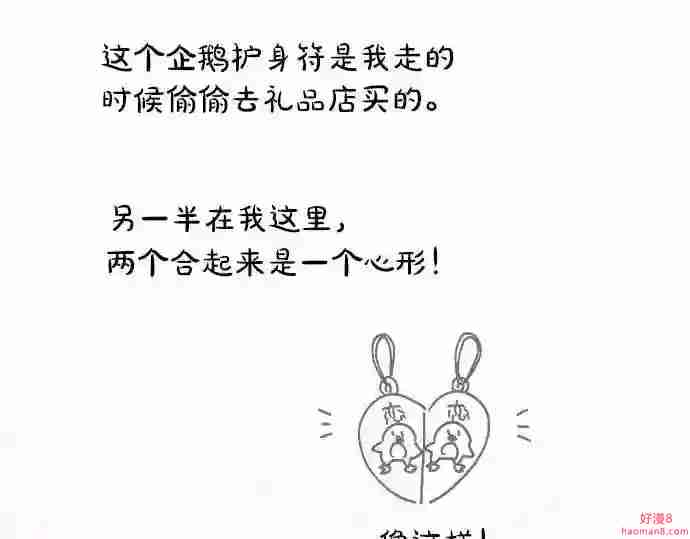 这个企鹅护身符是我走的
时候偷偷去礼品店买的。
另一半在我这里，
两个合起来是一个心形！
恋 恋
像这样！
好漫8
haoman8.com